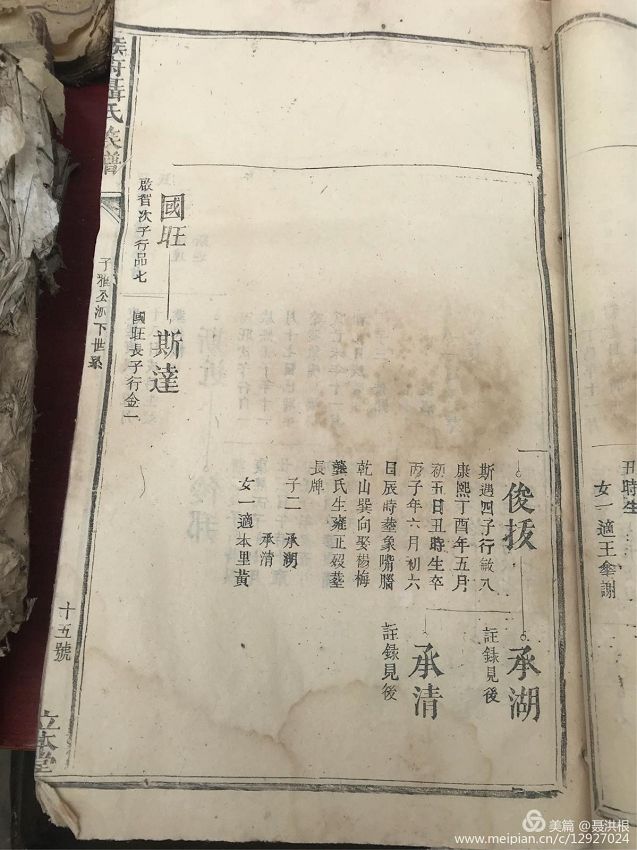 丑時生
女一適王拿謝
俊拔
斯遇四子行敏八
康熙丁酉年五月
初五日丑時生卒
丙子年六月初六
日辰時塟象嘴腦
乾山巽向娶楊梅
龔氏生雍正歿塟
長牌
子二
承湖
承清
女一適本里黃
承湖
註錄見後
承清
註錄見後
國旺
啟哲次子行品七
斯達
國旺長子行金一
聶氏族譜
下世系
十五號
立本堂
美篇 @聂洪根
www.meipian.cn/c/12927024